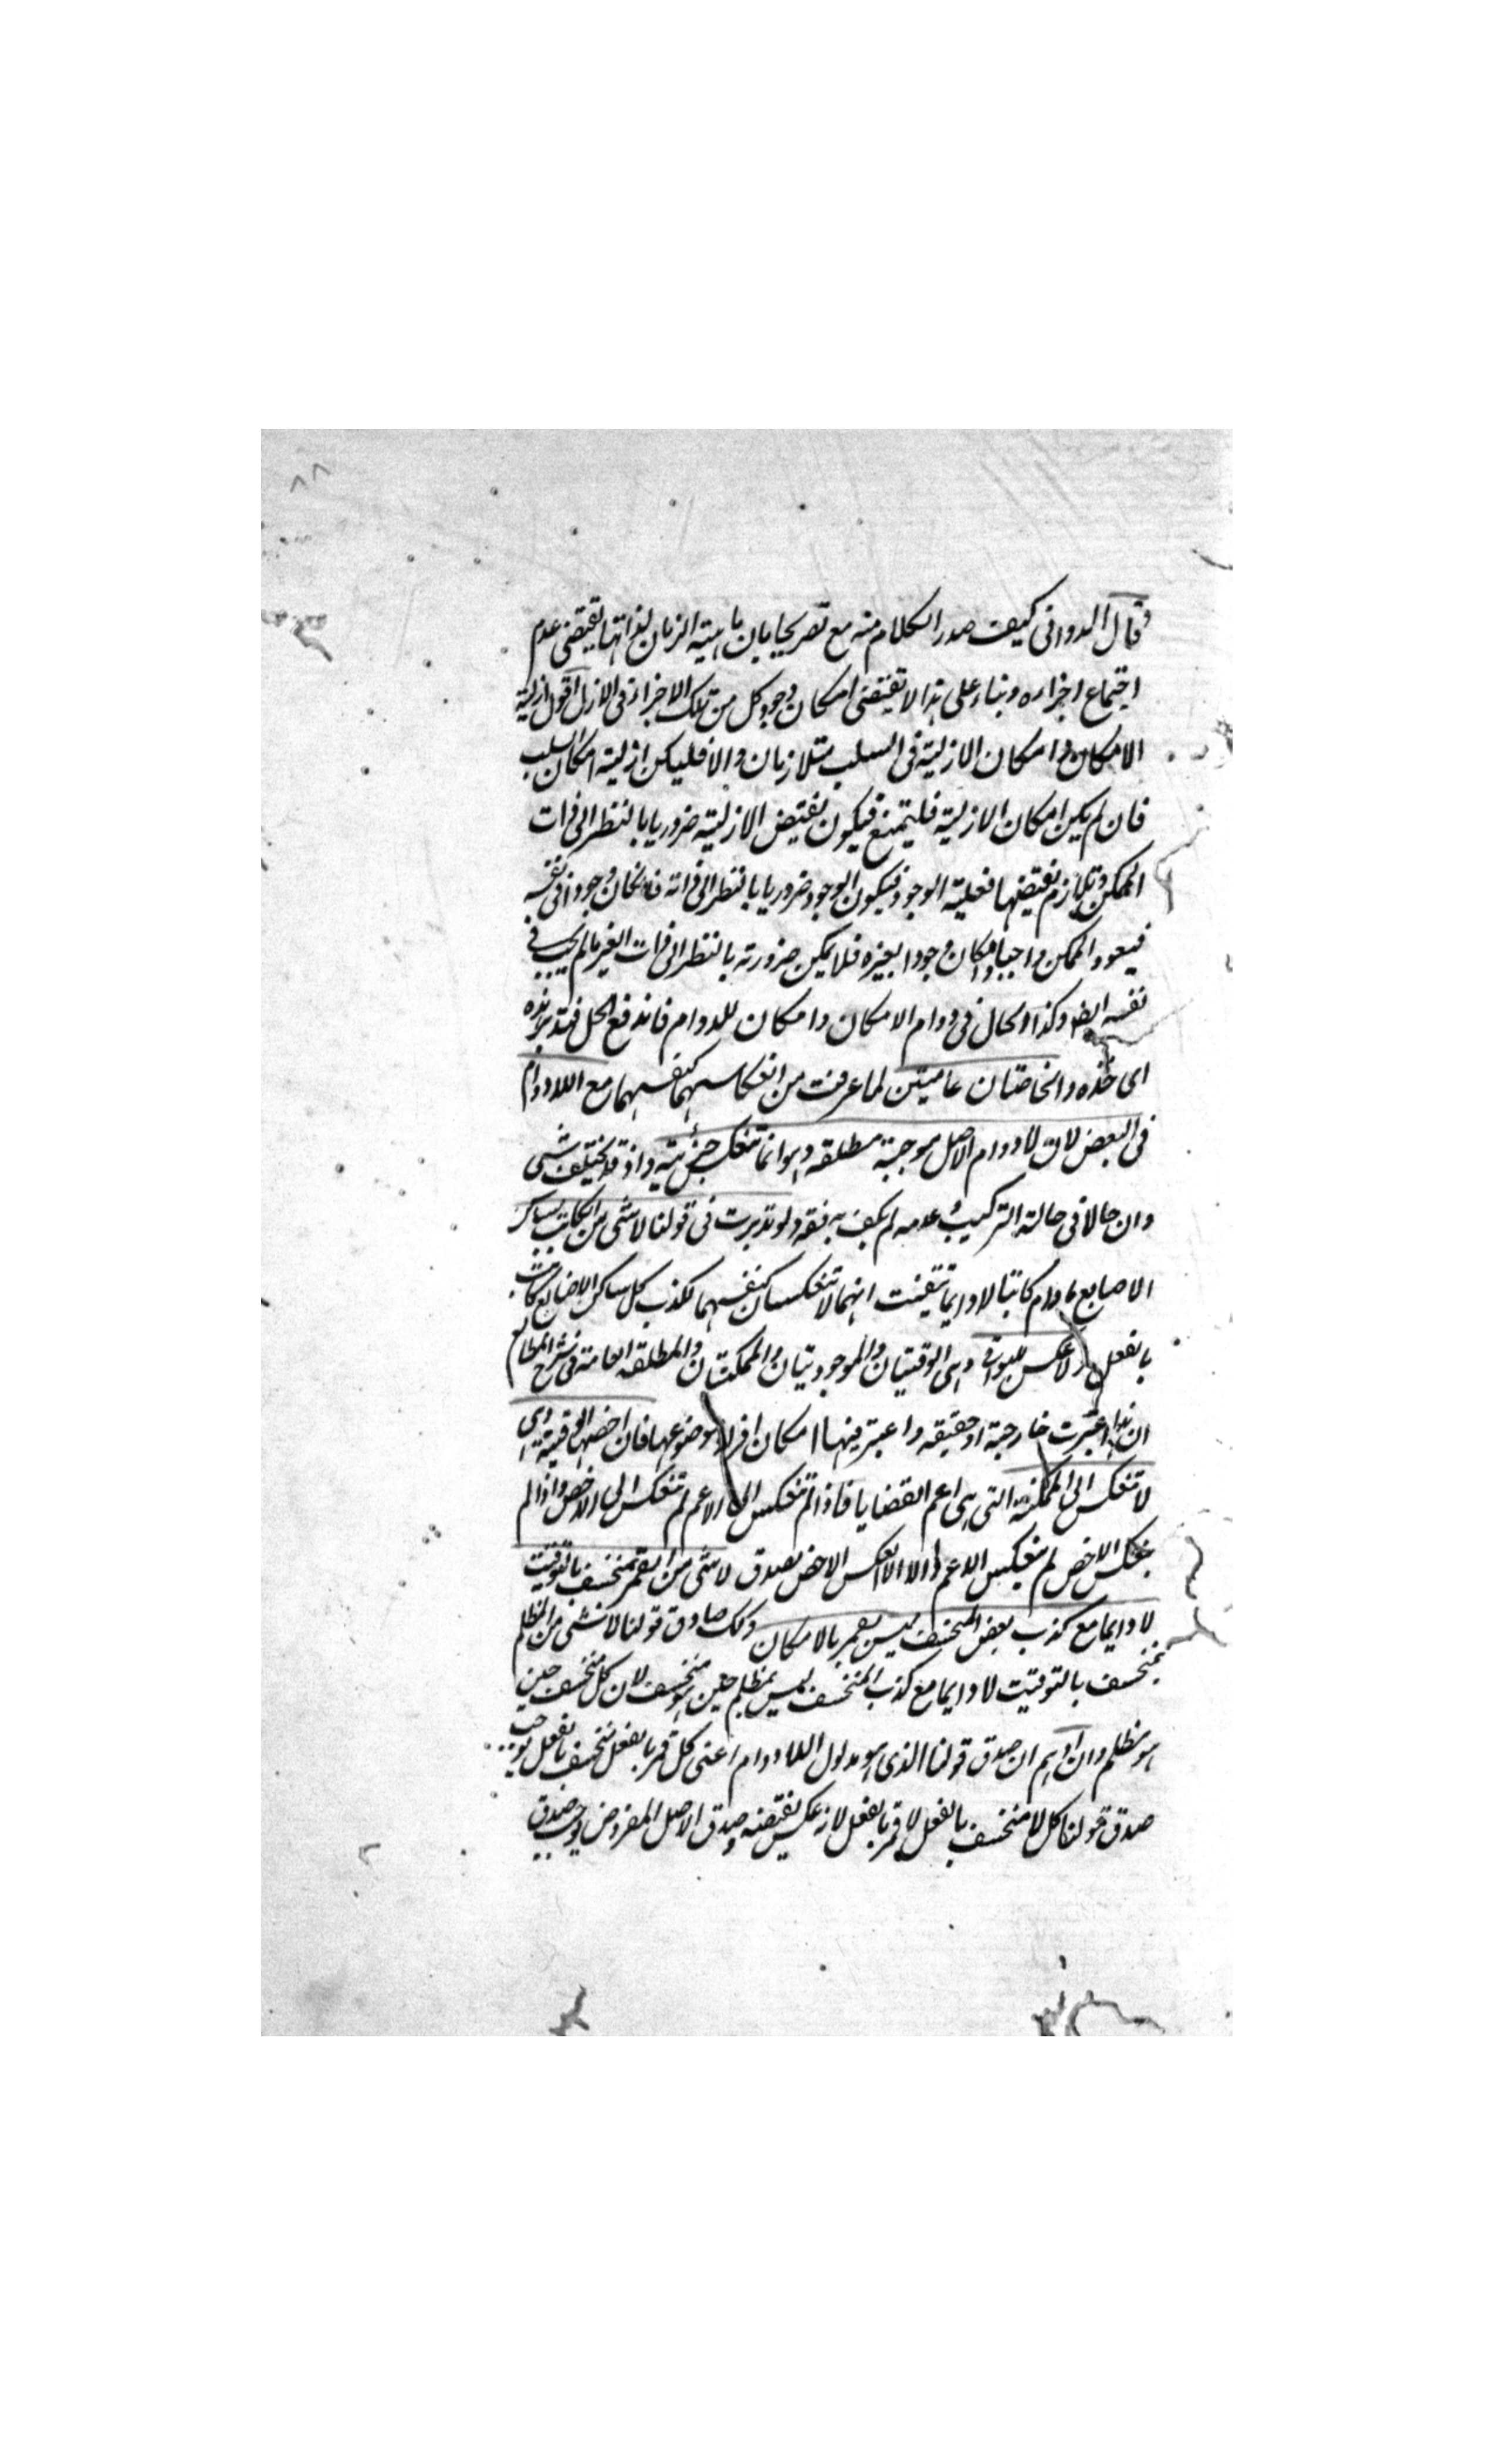 ٨٨
وقال الدوانى كيف صدر الكلام منه مع تصريحا بان ماهيته الزمان لذاتها يقتضى عدم
اجتماع اجزاءه وبناء على هذا لا تقتضى امكان وجود كل من تلك الاجزاء فى الازل اقول ازلية
الامكان وامكان الازلية فى السلب متلازمان والا فليكن ازلية امكان السلب
فان لم يكن امكان الازلية فليمتنع فيكون نقيض الازلية ضروريا بالنظر الى ذات
الممكن وتلازم نقيضها فعلية الوجود فيكون الوجود ضروريا بالنظر الى ذاته فان كان وجودا فى نفسه
فيعود الممكن واجبا وان كان وجودا لغيره فلا يمكن ضرورته بالنظر الى ذات الغير ما لم يجب فى
نفسه ايضا وكذا الحال فى دوام الامكان وامكان الدوام فاندفع الحل فتدبر هذه
اى خذه والخاصتان عاميتين لما عرفت من انعكاسهما كنفسهما مع اللادوام
فى البعض لان لا دوام الاصل موجبة مطلقه وهو انما تنعكس جزئية واذ قد يختلف شى
وان حالا فى حالة التركيب عدمه لم يكف به فقه ولو تدبرت فى قولنا لا شى من الكاتب بساكن
الاصابع مادام كاتبا لا دايما تيقنت انهما لا تنعكسان كنفسهما لكذب كل ساكن الاصابع كاتب
بالفعل ولا عكس للبواقى وهى الوقتيان والوجوديتيان والممكنتان والمطلقه العامة فى شرح المطالع
ان هذا اعتبرت خارجية او حقيقه واعتبر فيها امكان افراد موضوعها فان اخصها الوقتية وهى
لا تنعكس الى الممكنة التى هى اعم القضايا فاذا لم تنعكس الى الاعم لم تنعكس الى الاخص واذا لم
ينعكس الاخص لم ينعكس الاعم والا لانعكس الاخص يصدق لا شى من القمر بمنخسف بالتوقيت
لا دايما مع كذب بعض المنخسف ليس بقمر بالامكان ولك صادق قولنا لا شى من المظلم
بمنخسف بالتوقيت لا دايما مع كذب المنخسف ليس بمظلم حين هو منخسف لان كل منخسف حين
هو مظلم وان اوهم ان صدق قولنا الذى هو مدلول اللادوام اعنى كل قمر بالفعل منخسف بالفعل يوجب
صدق قولنا كل لا منخسف بالفعل لا قمر بالفعل لانه عكس نقيضه وصدق الاصل المفروض يوجب صدق